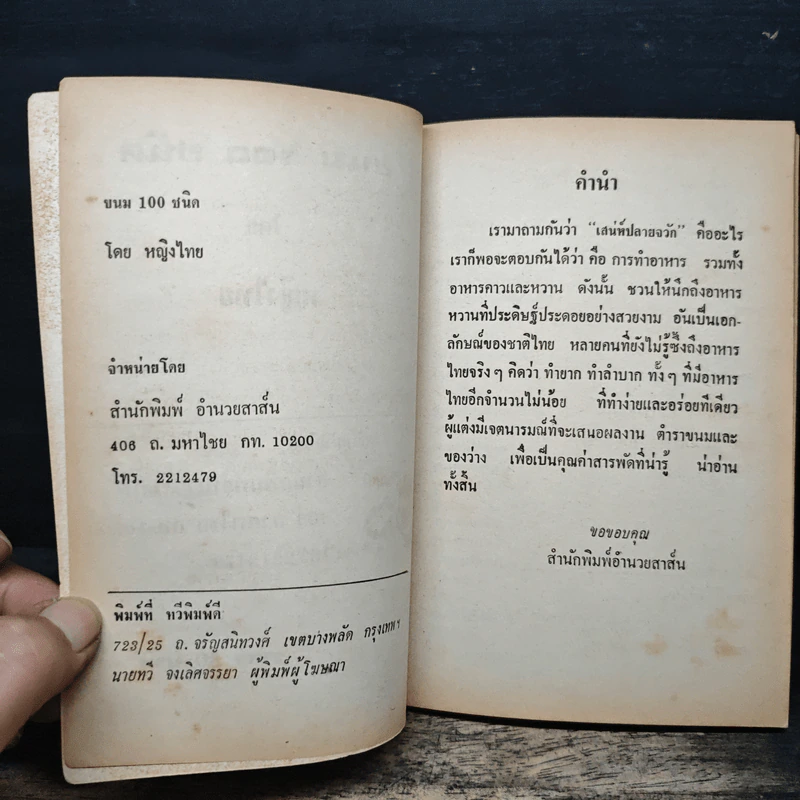 ขนม 100 ชนิด
โดย หญิงไทย
จำหน่ายโดย
สำนักพิมพ์ อำนวยสาส์น
406 ถ. มหาไชย กท. 10200
โทร. 2212479
พิมพ์ที่ ทวีพิมพ์ดี
723/25 ถ. จรัญสนิทวงศ์ เขตบางพลัด กรุงเทพฯ
นายทวี จงเลิศจรรยา ผู้พิมพ์ผู้โฆษณา
คำนำ
เรามาถามกันว่า "เสน่ห์ปลายจวัก" คืออะไร
เราก็พอจะตอบกันได้ว่า คือ การทำอาหาร รวมทั้ง
อาหารคาวและหวาน ดังนั้น ชวนให้นึกถึงอาหาร
หวานที่ประดิษฐ์ประดอยอย่างสวยงาม อันเป็นเอก-
ลักษณ์ของชาติไทย หลายคนที่ยังไม่รู้ซึ้งถึงอาหาร
ไทยจริงๆ คิดว่า ทำยาก ทำลำบาก ทั้งๆ ที่มีอาหาร
ไทยอีกจำนวนไม่น้อย ที่ทำง่ายและอร่อยทีเดียว
ผู้แต่งมีเจตนารมณ์ที่จะเสนอผลงาน ตำราขนมและ
ของว่าง เพื่อเป็นคุณค่าสารพัดที่น่ารู้ น่าอ่าน
ทั้งสิ้น
ขอขอบคุณ
สำนักพิมพ์อำนวยสาส์น